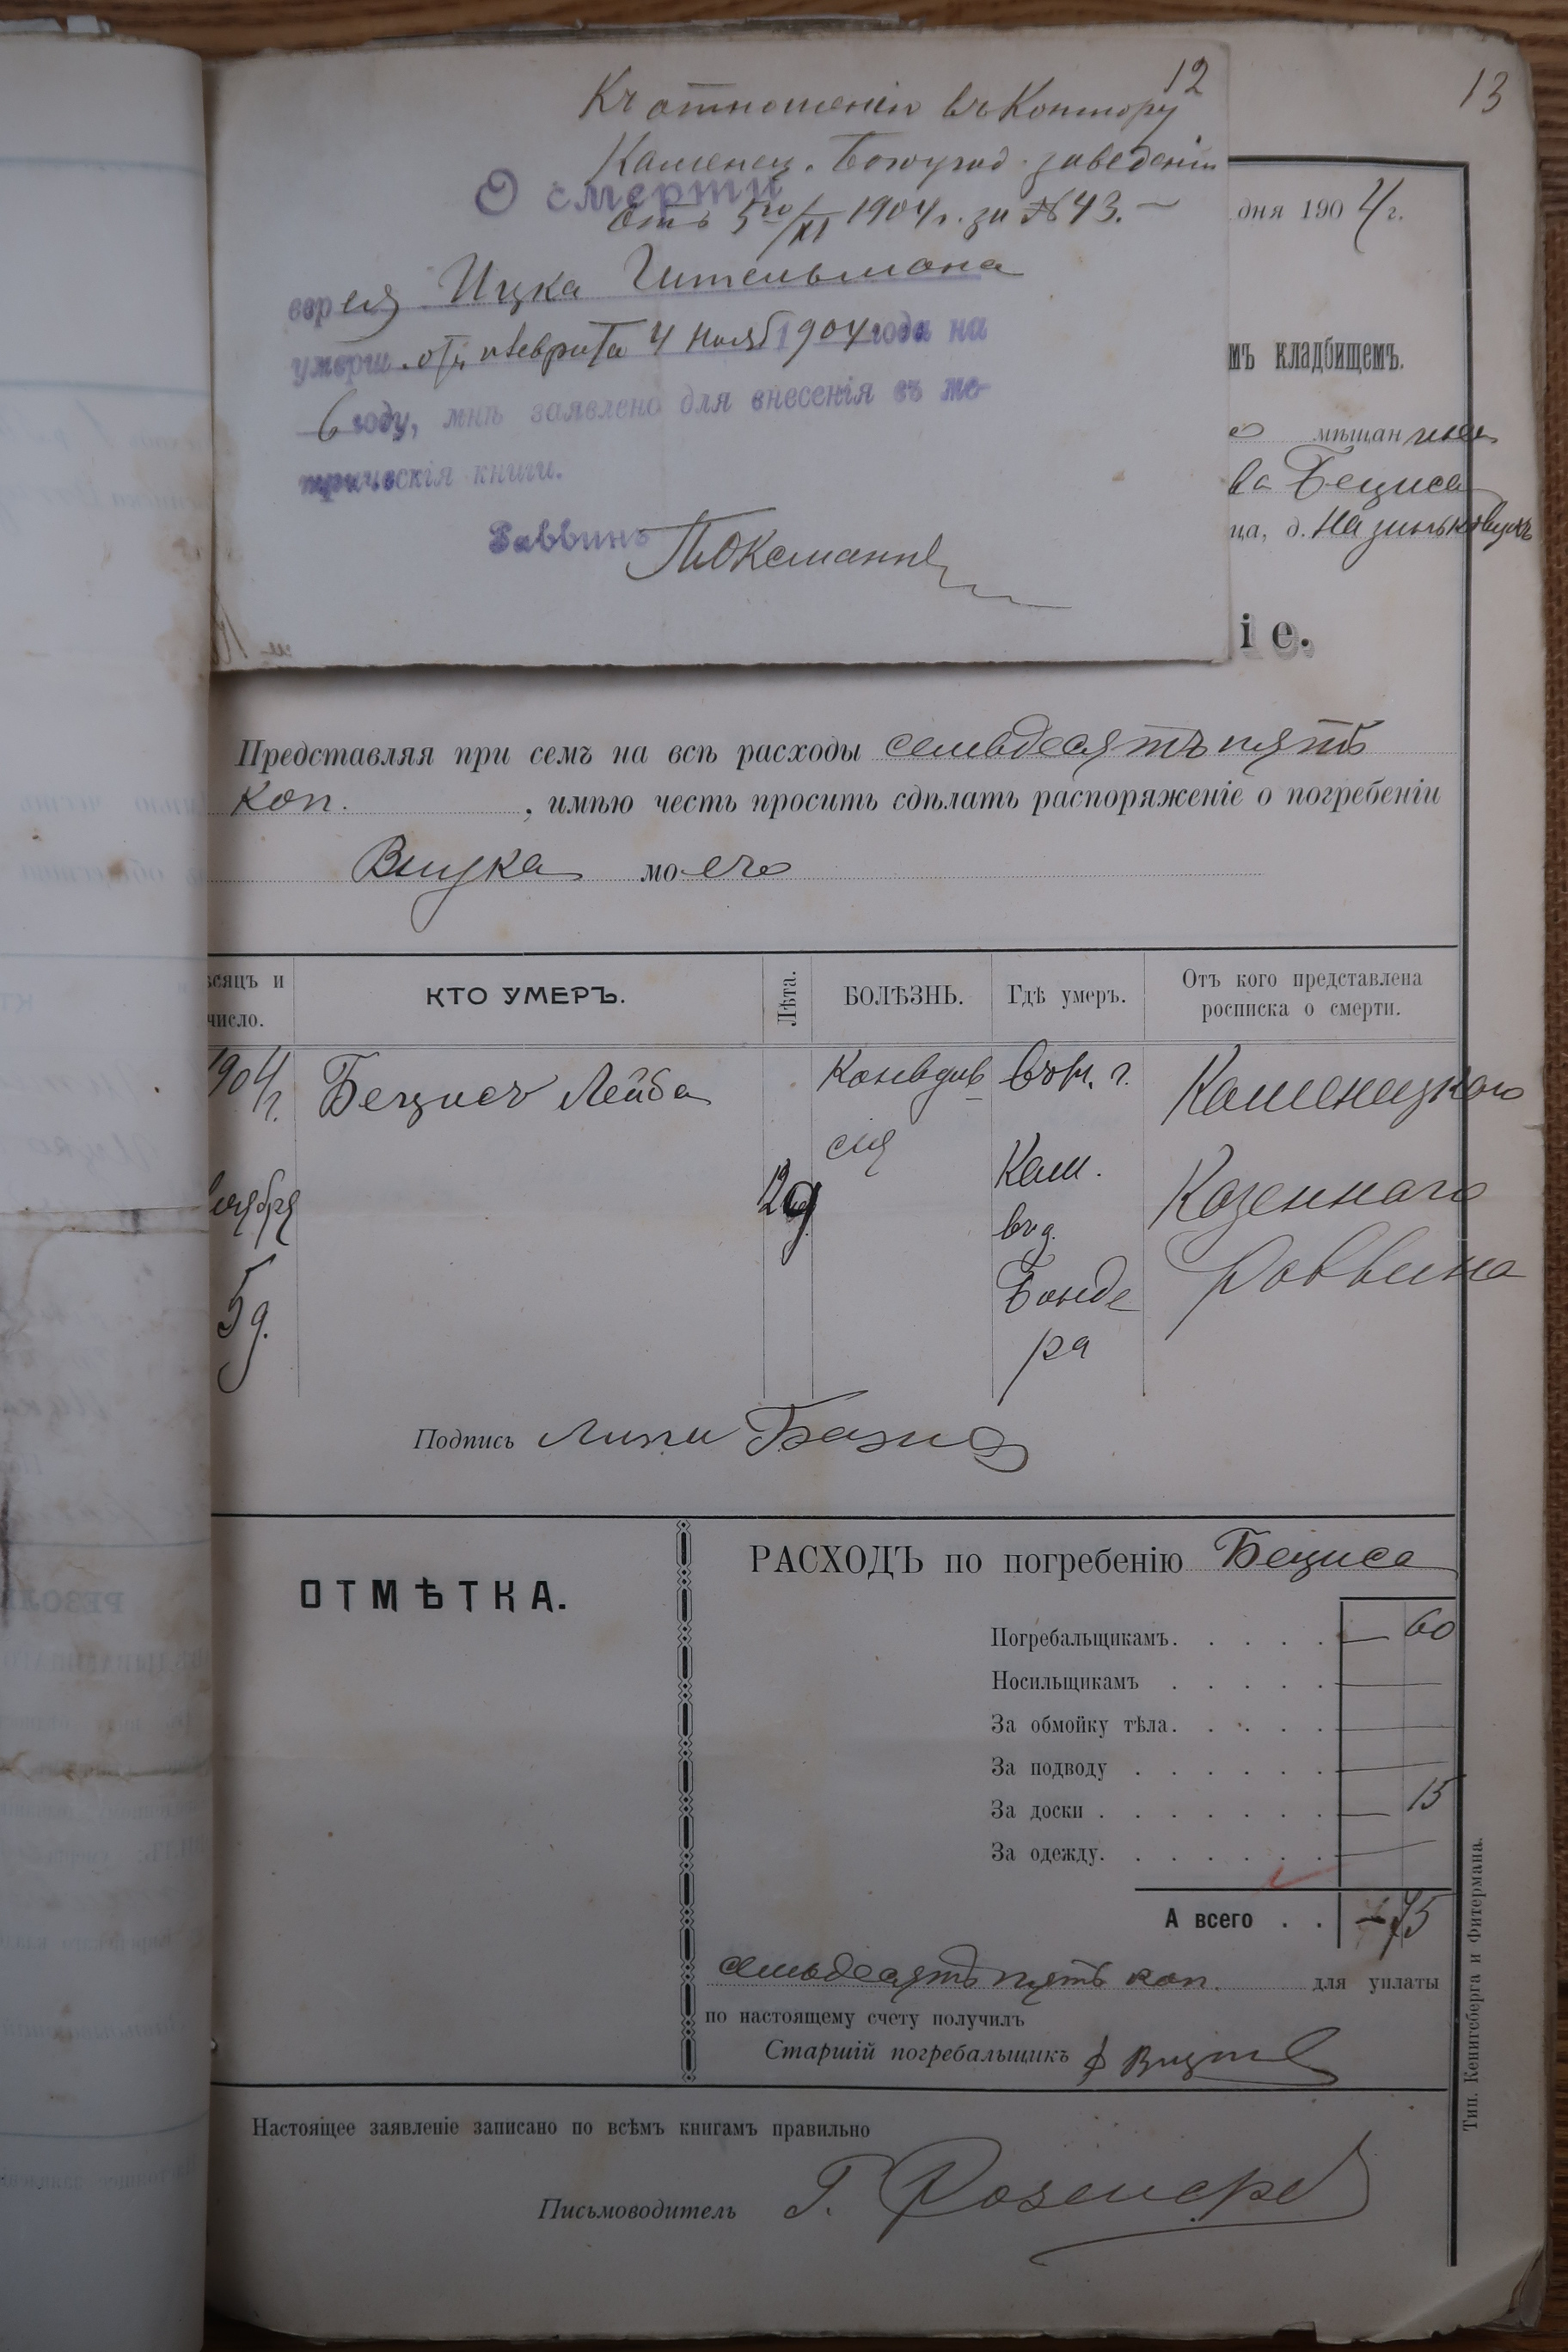 12
13
Къ отношенію въ Контору
Каменец. Богоугод. заведенія
О смерти
отъ 5го/XI 1904 г. за №43.
евреея Ицка Гительмана
умерш. отъ плеврита 4 нояб 1904 года на
6 году, мнѣ заявлено для внесенія въ ме-
трическія книги.
Раввинъ
дня 1904 г.
мъ кладбищемъ.
мѣщанина
ва Бециса
ца, д. На Зиньковцахъ
іе.
Представляя при семъ на всѣ расходы семьдесятъ пять
коп. , имѣю честь просить сдѣлать распоряженіе о погребеніи
Внука моего
ѣсяцъ и число. КТО УМЕРЪ. Лѣта. БОЛѢЗНЬ. Гдѣ умеръ. Отъ кого представлена росписка о смерти.
1904 г. Бецисъ Лейба Конвульсія въ г. Каменецкаго
ноября 2 Кам. Казеннаго
5 д. Бондера Раввина
Подпись
ОТМѢТКА.
РАСХОДЪ по погребенію Бециса
Погребальщикамъ. . . . . — 60
Носильщикамъ . . . . . —
За обмойку тѣла. . . . . —
За подводу . . . . . . —
За доски . . . . . . . — 15
За одежду. . . . . . . —
А всего . . — 75
семьдесятъ пять коп. для уплаты
по настоящему счету получилъ
Старшій погребальщикъ
Настоящее заявленіе записано по всѣмъ книгамъ правильно
Письмоводитель Г.
Тип. Кенигсберга и Фитермана.